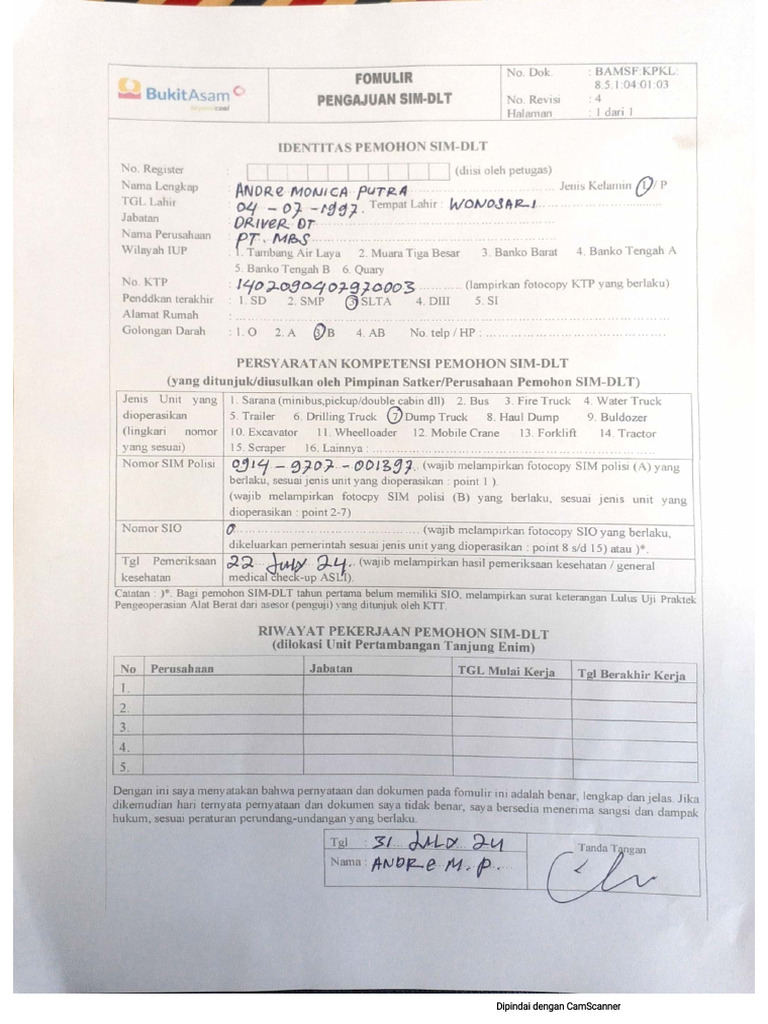 BukitAsam
FOMULIR
PENGAJUAN SIM-DLT
No. Dok. : BAMSF:KPKL:
8.5.1:04:01:03
No. Revisi : 4
Halaman : 1 dari 1
IDENTITAS PEMOHON SIM-DLT
No. Register : (diisi oleh petugas)
Nama Lengkap : ANDRE MONICA PUTRA Jenis Kelamin L / P
TGL Lahir : 04 - 07 - 1997 Tempat Lahir : WONOSARI
Jabatan : DRIVER DT
Nama Perusahaan : PT. MBS
Wilayah IUP : 1. Tambang Air Laya 2. Muara Tiga Besar 3. Banko Barat 4. Banko Tengah A
5. Banko Tengah B 6. Quary
No. KTP : 1402090407970003 (lampirkan fotocopy KTP yang berlaku)
Penddkan terakhir : 1. SD 2. SMP 3 SLTA 4. DIII 5. SI
Alamat Rumah :
Golongan Darah : 1. O 2. A 3 B 4. AB No. telp / HP :
PERSYARATAN KOMPETENSI PEMOHON SIM-DLT
(yang ditunjuk/diusulkan oleh Pimpinan Satker/Perusahaan Pemohon SIM-DLT)
Jenis Unit yang dioperasikan (lingkari nomor yang sesuai)
1. Sarana (minibus,pickup/double cabin dll) 2. Bus 3. Fire Truck 4. Water Truck
5. Trailer 6. Drilling Truck 7 Dump Truck 8. Haul Dump 9. Buldozer
10. Excavator 11. Wheelloader 12. Mobile Crane 13. Forklift 14. Tractor
15. Scraper 16. Lainnya :
Nomor SIM Polisi 0914 - 9707 - 001397. (wajib melampirkan fotocopy SIM polisi (A) yang
berlaku, sesuai jenis unit yang dioperasikan : point 1 )
(wajib melampirkan fotocpy SIM polisi (B) yang berlaku, sesuai jenis unit yang
dioperasikan : point 2-7)
Nomor SIO 0 (wajib melampirkan fotocopy SIO yang berlaku,
dikeluarkan pemerintah sesuai jenis unit yang dioperasikan : point 8 s/d 15) atau )*.
Tgl Pemeriksaan kesehatan 22 July 24. (wajib melampirkan hasil pemeriksaan kesehatan / general
medical check-up ASLI).
Catatan : )*. Bagi pemohon SIM-DLT tahun pertama belum memiliki SIO, melampirkan surat keterangan Lulus Uji Praktek
Pengeoperasian Alat Berat dari asesor (penguji) yang ditunjuk oleh KTT.
RIWAYAT PEKERJAAN PEMOHON SIM-DLT
(dilokasi Unit Pertambangan Tanjung Enim)
No Perusahaan Jabatan TGL Mulai Kerja Tgl Berakhir Kerja
1.
2.
3.
4.
5.
Dengan ini saya menyatakan bahwa pernyataan dan dokumen pada fomulir ini adalah benar, lengkap dan jelas. Jika
dikemudian hari ternyata pernyataan dan dokumen saya tidak benar, saya bersedia menerima sangsi dan dampak
hukum, sesuai peraturan perundang-undangan yang berlaku.
Tgl : 31 JULY 24 Tanda Tangan
Nama : ANDRE M. P.
Dipindai dengan CamScanner